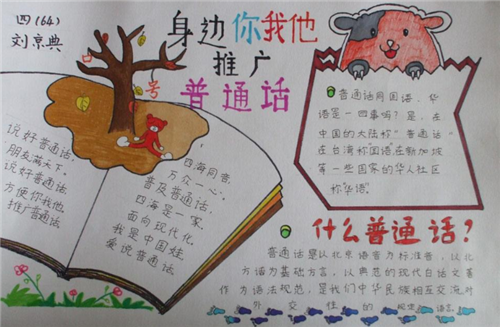 四(64)
刘京典
身边你我他
推广
普通话
说好普通话,
朋友满天下,
说好普通话
方便你我他,
推广普通话
四海同音,
万众一心,
普及普通话
四海是一家.
面向现代化,
我是中国娃,
爱说普通话
普通话同国语、华
语是一回事吗?是,在
中国的大陆称"普通话"
在台湾称国语在新加坡
等一些国家的华人社区
称华语。
什么普通话?
普通话是以北京语音为标准音,以北
方话为基础方言,以典范的现代白话文著
作为语法规范,是我们中华民族相互交流对
外交往的 语言